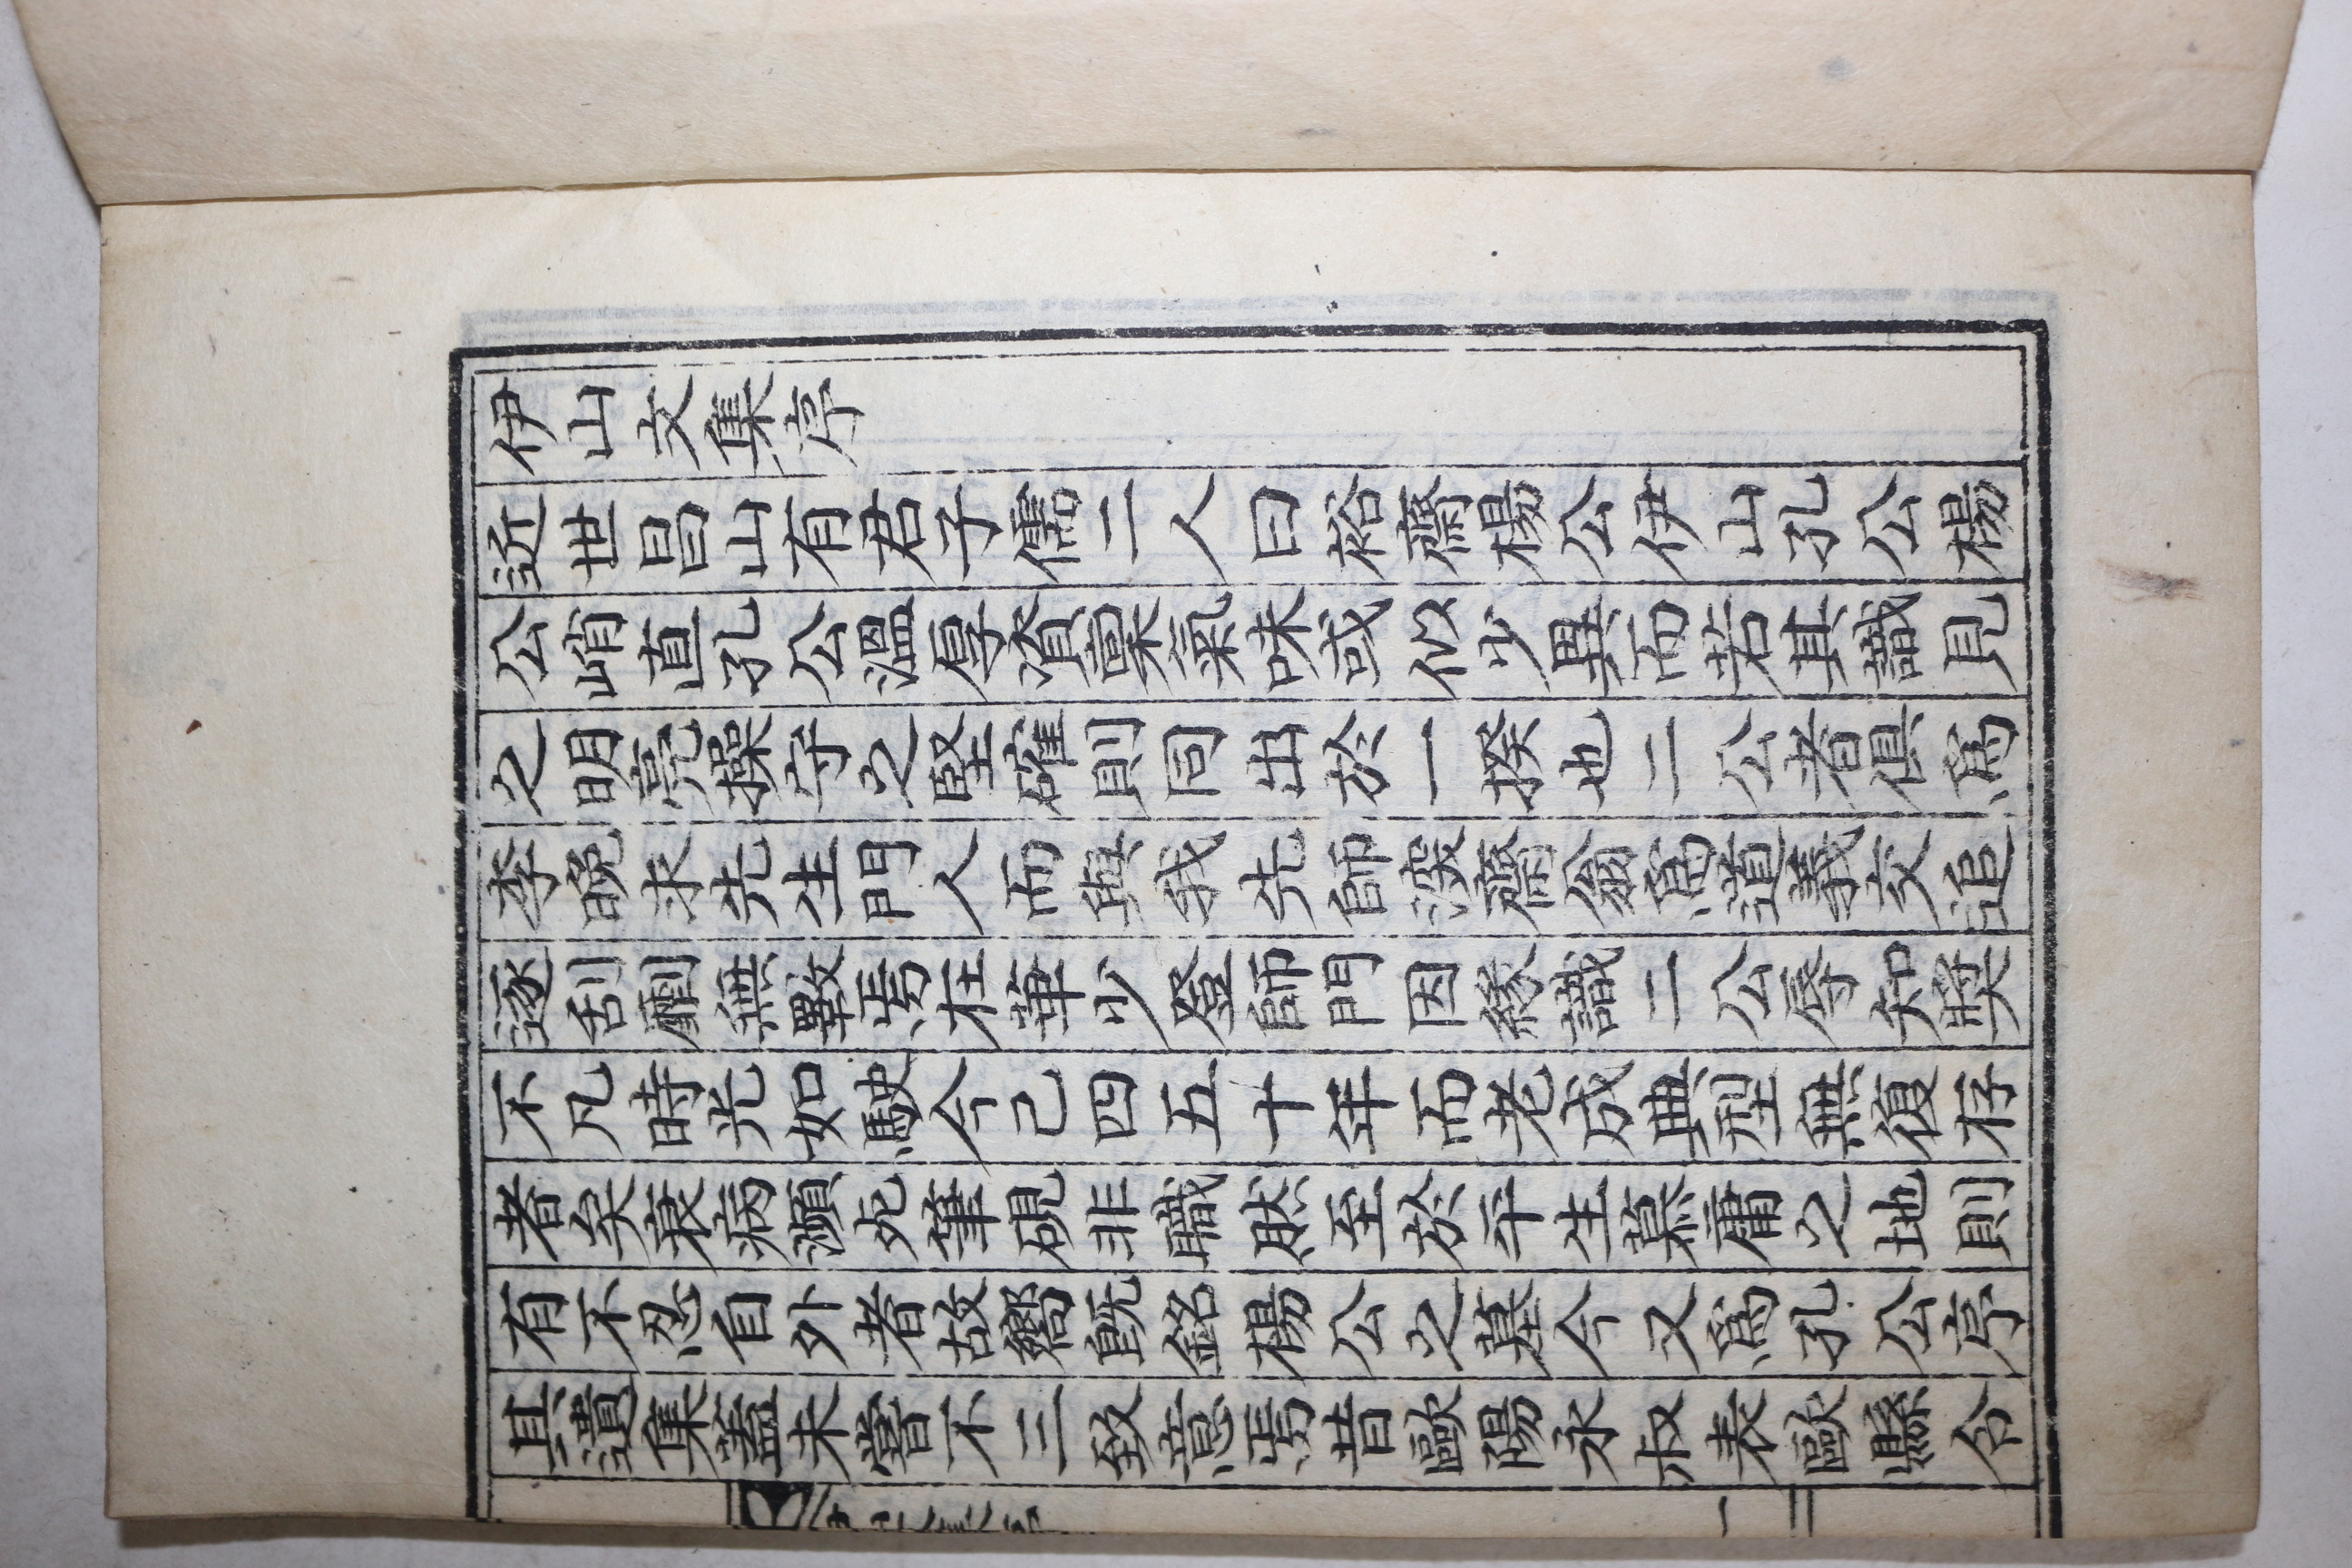 伊山文集序
近世昌山有君子儒二人曰裕齋楊公伊山孔公楊
公峭直孔公溫厚資稟氣味或似少異而若其識見
之明亮操守之堅確則同出於一揆也二公者俱爲
李晩求先生門人而與我先師深齋翁爲道義交追
逐刮劘無斁焉在華少登師門因緣識二公辱知奬
不凡時光如駛今已四五十年而老成典型無復存
者矣衰病瀕死筆硯非職然至於平生慕庸之地則
有不忍自外者故嚮既銘楊公之墓今又爲孔公序
其遺集蓋未嘗不三致意焉昔歐陽永叔表歐縣令
一